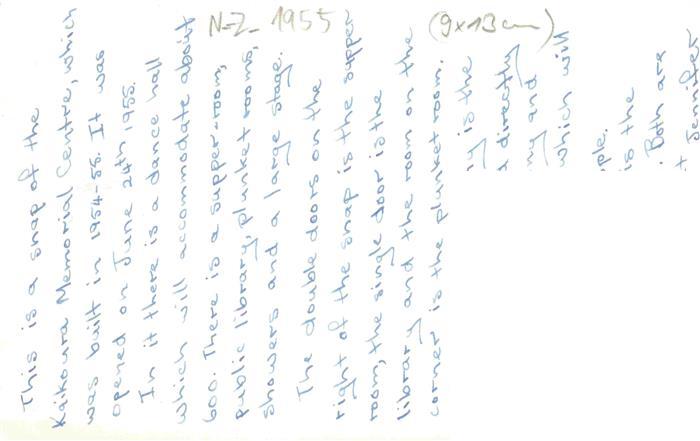 N-Z- 1955 (9x13cm)
This is a snap of the
Kaikoura Memorial Centre, which
was built in 1954-55. It was
opened on June 24th 1955.
In it there is a dance hall
which will accommodate about
600. There is a supper-room,
public library, plunket rooms,
showers and a large stage.
The double doors on the
right of the snap is the supper
room, the single door is the
library and the room on the
corner is the plunket room.
is the
directly
and
which will
is the
. Both are
Jennifer